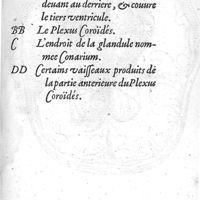 deuant au derriere, & couure
le tiers ventricule.
BB Le Plexus Coroïdés.
C L'endroit de la glandule nom-
mee Conarium.
DD Certains vaisseaux produits de
la partie anterieure du Plexus
Coroïdés.